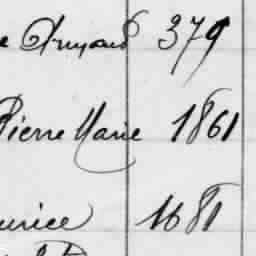 e Armand 379
Pierre Marie 1861
urice 1681